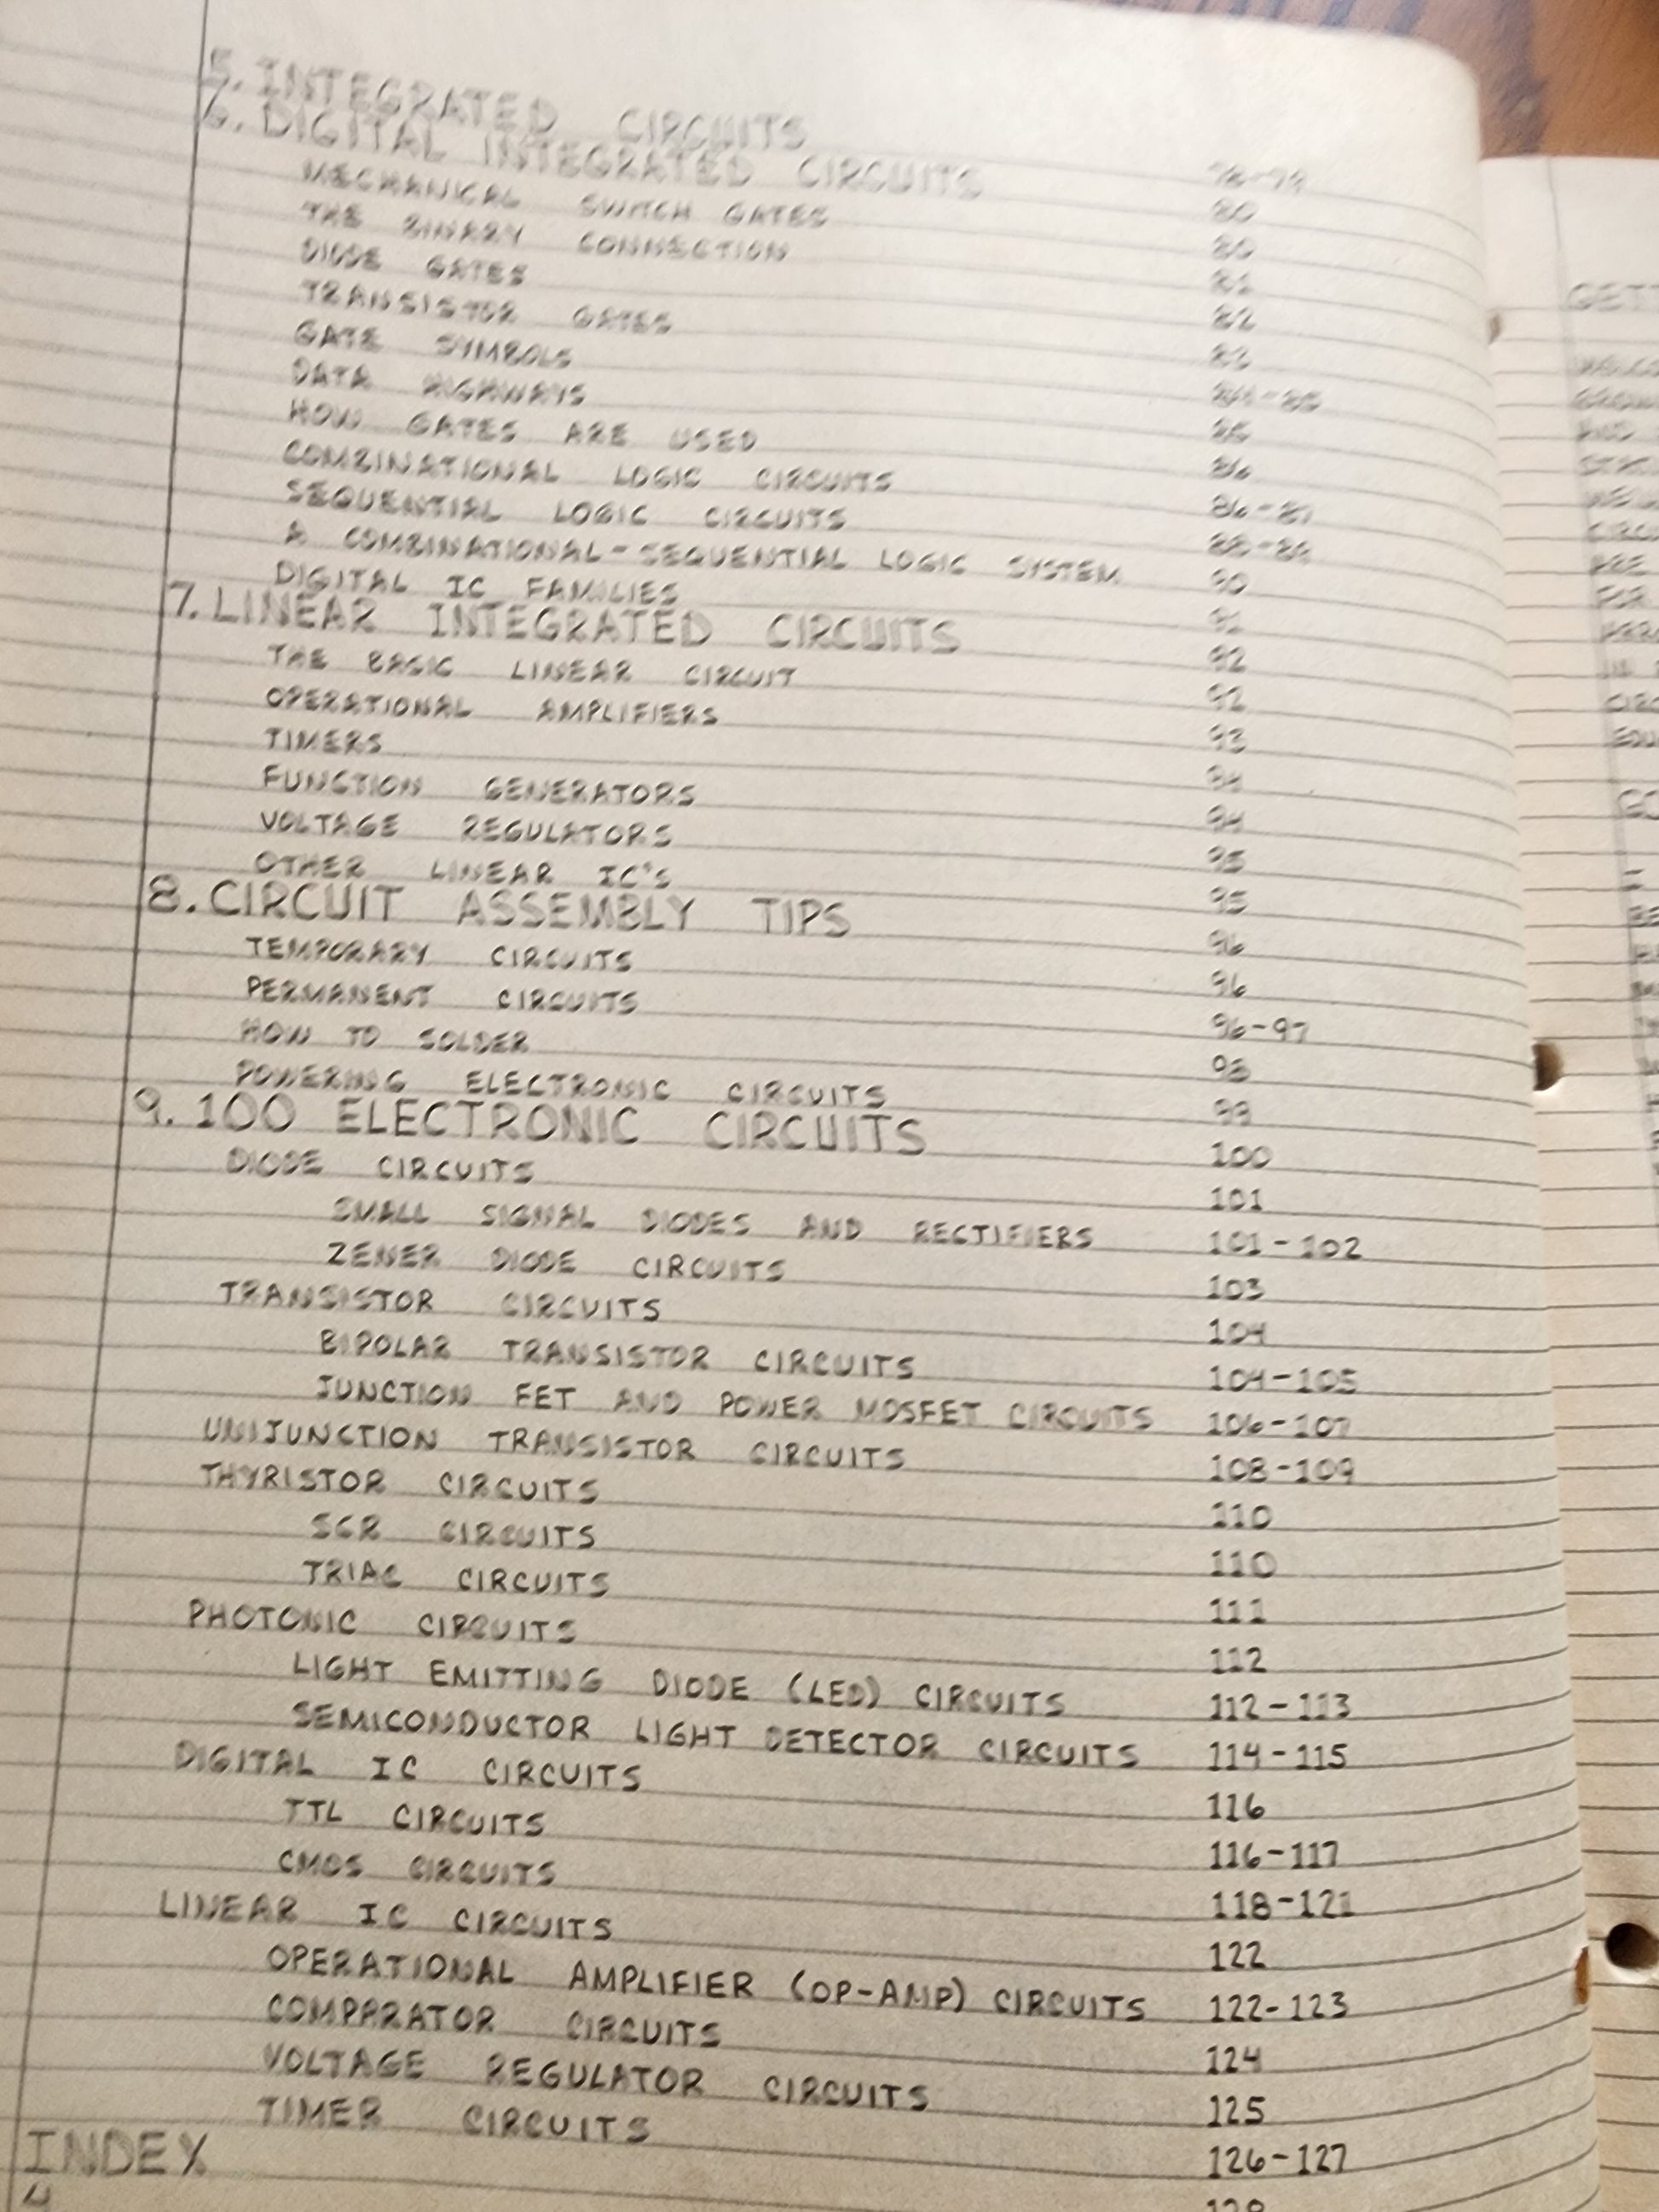 5. INTEGRATED CIRCUITS 78-79
6. DIGITAL INTEGRATED CIRCUITS 80
MECHANICAL SWITCH GATES 80
THE BINARY CONNECTION 81
DIODE GATES 82
TRANSISTOR GATES 83
GATE SYMBOLS 84-85
DATA HIGHWAYS 85
HOW GATES ARE USED 86
COMBINATIONAL LOGIC CIRCUITS 86-87
SEQUENTIAL LOGIC CIRCUITS 88-89
A COMBINATIONAL-SEQUENTIAL LOGIC SYSTEM 90
DIGITAL IC FAMILIES 91
7. LINEAR INTEGRATED CIRCUITS 92
THE BASIC LINEAR CIRCUIT 92
OPERATIONAL AMPLIFIERS 93
TIMERS 94
FUNCTION GENERATORS 94
VOLTAGE REGULATORS 95
OTHER LINEAR IC'S 95
8. CIRCUIT ASSEMBLY TIPS 96
TEMPORARY CIRCUITS 96
PERMANENT CIRCUITS 96-97
HOW TO SOLDER 98
POWERING ELECTRONIC CIRCUITS 99
9. 100 ELECTRONIC CIRCUITS 100
DIODE CIRCUITS 101
SMALL SIGNAL DIODES AND RECTIFIERS 101-102
ZENER DIODE CIRCUITS 103
TRANSISTOR CIRCUITS 104
BIPOLAR TRANSISTOR CIRCUITS 104-105
JUNCTION FET AND POWER MOSFET CIRCUITS 106-107
UNIJUNCTION TRANSISTOR CIRCUITS 108-109
THYRISTOR CIRCUITS 110
SCR CIRCUITS 110
TRIAC CIRCUITS 111
PHOTONIC CIRCUITS 112
LIGHT EMITTING DIODE (LED) CIRCUITS 112-113
SEMICONDUCTOR LIGHT DETECTOR CIRCUITS 114-115
DIGITAL IC CIRCUITS 116
TTL CIRCUITS 116-117
CMOS CIRCUITS 118-121
LINEAR IC CIRCUITS 122
OPERATIONAL AMPLIFIER (OP-AMP) CIRCUITS 122-123
COMPARATOR CIRCUITS 124
VOLTAGE REGULATOR CIRCUITS 125
TIMER CIRCUITS 126-127
INDEX 128